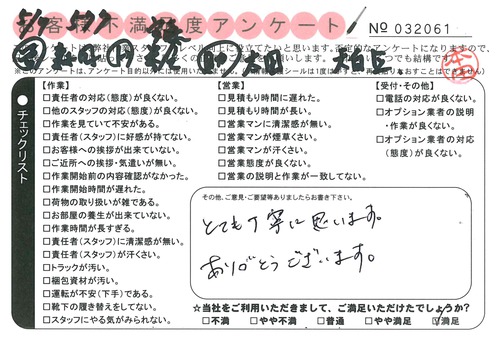 お客様不満足度アンケート
№ 032061
チェックリスト
【作業】
□責任者の対応(態度)が良くない。
□他のスタッフの対応(態度)が良くない。
□作業を見ていて不安がある。
□責任者(スタッフ)に好感が持てない。
□お客様への挨拶が出来ていない。
□ご近所への挨拶・気遣いが無い。
□作業開始前の内容確認がなかった。
□作業開始時間が遅れた。
□荷物の取り扱いが雑である。
□お部屋の養生が出来ていない。
□作業時間が長すぎる。
□責任者(スタッフ)に清潔感が無い。
□責任者(スタッフ)が汗くさい。
□トラックが汚い。
□梱包資材が汚い。
□運転が不安(下手)である。
□靴下の履き替えをしてない。
□スタッフにやる気がみられない。
【営業】
□見積もり時間に遅れた。
□見積もり時間が長い。
□営業マンに清潔感が無い。
□営業マンが煙草くさい。
□営業マンが汗くさい。
□営業態度が良くない。
□営業の説明と作業が一致してない。
【受付・その他】
□電話の対応が良くない。
□オプション業者の説明
・作業が良くない。
□オプション業者の対応
(態度)が良くない。
その他、ご意見・ご要望等ありましたらお書き下さい。
とても丁寧に思います。
ありがとうございます。
☆当社をご利用いただきまして、ご満足いただけたでしょうか?
□不満 □やや不満 □普通 □やや満足 □満足